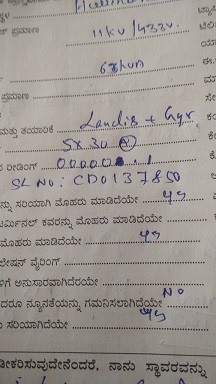 ಟ್ ಪ್ರಮಾಣ 11KV/433V.
ಪ್ರಮಾಣ
ಮತ್ತು ತಯಾರಿಕೆ Landis + Gyr
ರ ರೀಡಿಂಗ್ 00000.1
SL NO: CD0137850
ನ್ನು ಸರಿಯಾಗಿ ಮೊಹರು ಮಾಡಿದೆಯೇ ys
ಟರ್ಮಿನಲ್ ಕವರನ್ನು ಮೊಹರು ಮಾಡಿದೆಯೇ
ಮೊಹರು ಮಾಡಿದೆಯೇ ys
ಲೇಷನ್ ವೈರಿಂಗ್
ಳಿಗೆ ಅನುಸಾರವಾಗಿದೆಯೇ No
ದರೂ ನ್ಯೂನತೆಯನ್ನು ಗಮನಿಸಲಾಗಿದೆಯೇ
ು ಸರಿಯಾಗಿದೆಯೇ ys
ಡೀಕರಿಸುವುದೇನೆಂದರೆ, ನಾನು ಸ್ಥಾವರವನ್ನು